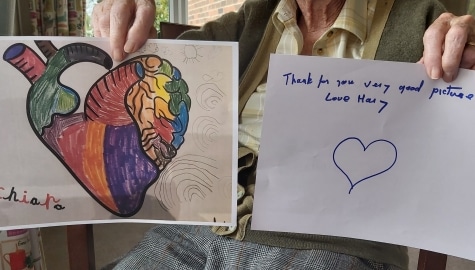 chiara
Thank for you very good picture
Love Hary